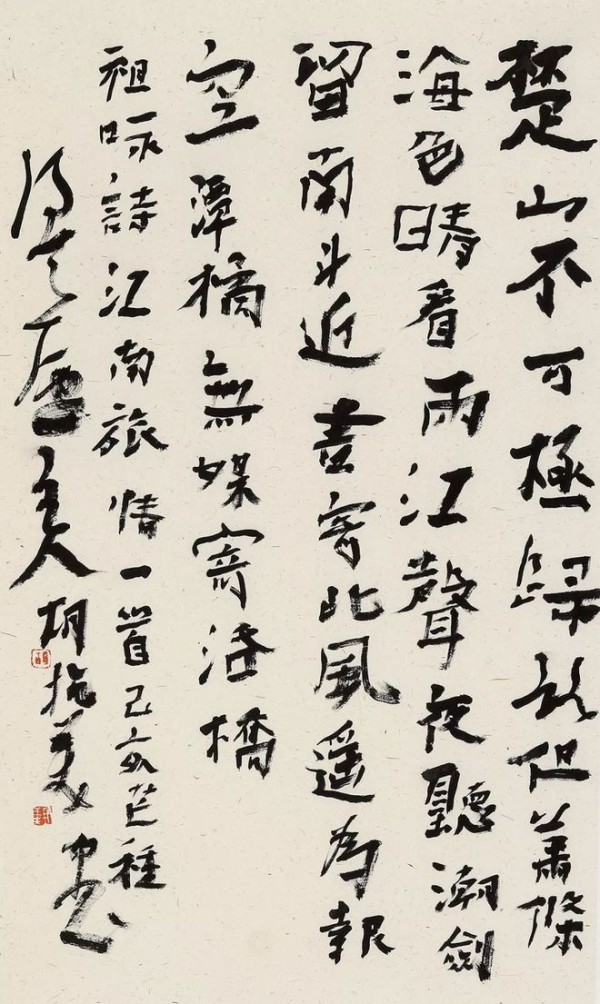 楚山不可極歸路但蕭條
海色晴看雨江聲夜聽潮劍
留南斗近書寄北風遥為報
空潭橘無媒寄洛橋
祖咏詩江南旅情一首己亥芒種
主人胡抗美書